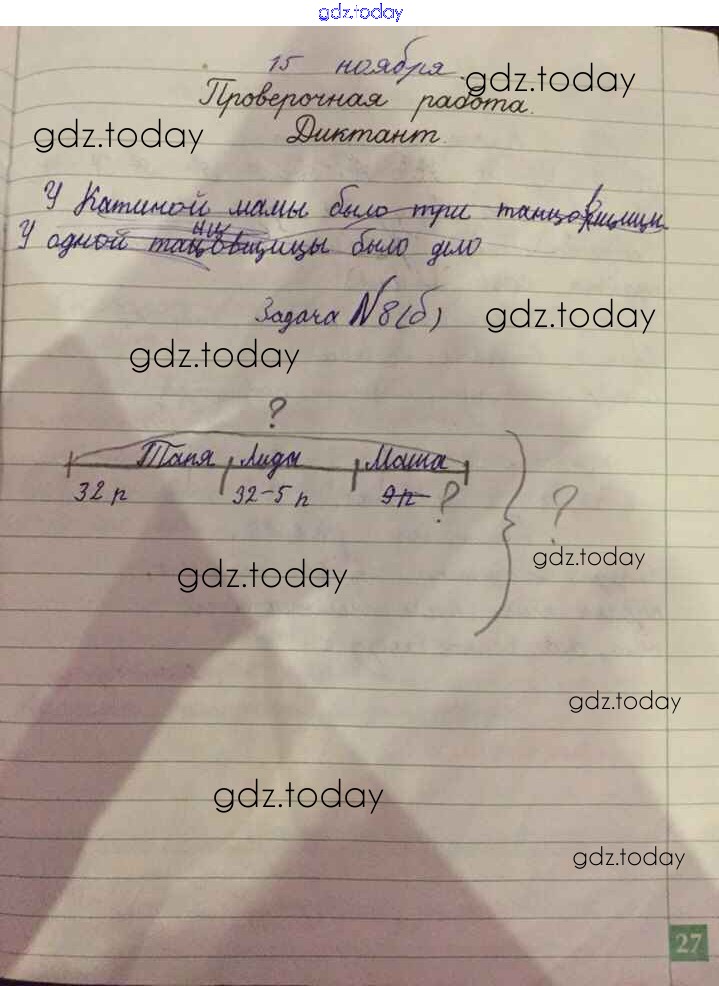 gdz.today
15 ноября
gdz.today
Проверочная работа.
gdz.today
Диктант.
У Катиной мамы было три танцовщицы.
У одной было дело
Задача №8(б)
gdz.today
gdz.today
?
Таня Лиды Маша
32 п 32-5 п 9 п ? ?
gdz.today
gdz.today
gdz.today
gdz.today
gdz.today
27